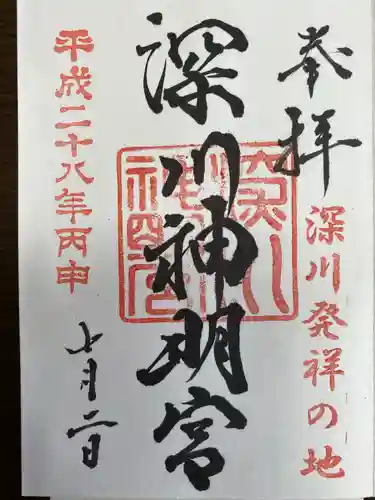 奉拝
深川発祥の地
深川神明宮
平成二十八年丙申
十月二日